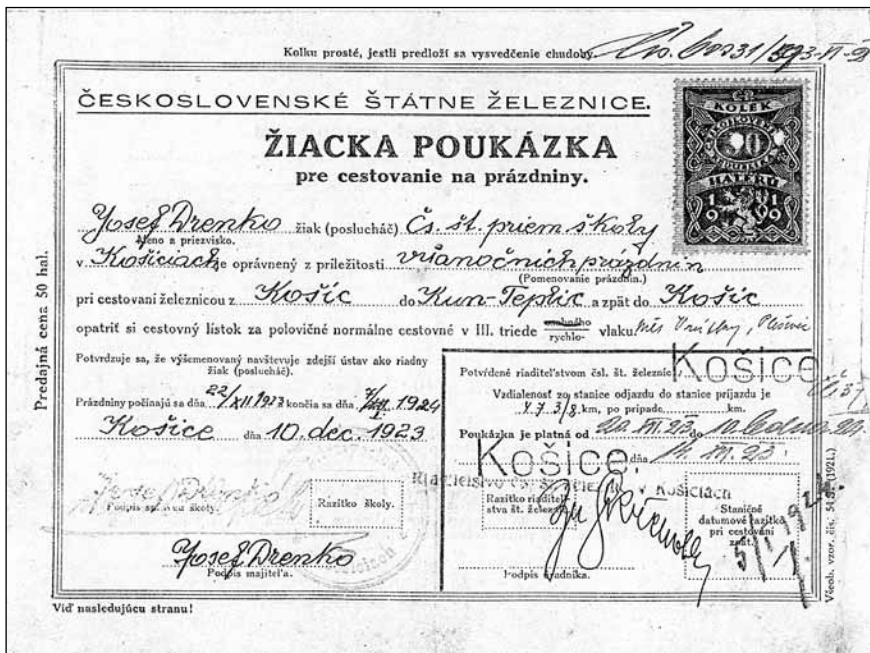 Kolku prosté, jestli predloží sa vysvedčenie chudoby.
ČESKOSLOVENSKÉ ŠTÁTNE ŽELEZNICE.
KOLEK
HALÉŘŮ
1919
ŽIACKA POUKÁZKA
pre cestovanie na prázdniny.
Josef Drenko žiak (poslucháč) Čs. št. priem. školy
Meno a priezvisko.
v Košiciach je oprávnený z príležitosti vianočních prázdnin
(Pomenovanie prázdnin.)
pri cestovaní železnicou z Košíc do Kun-Teplic a zpät do Košíc
opatriť si cestovný lístok za polovičné normálne cestovné v III. triede osobného
rychlo- vlaku
Potvrdzuje sa, že výšemenovaný navštevuje zdejší ústav ako riadny
žiak (poslucháč).
Prázdniny počínajú sa dňa 22/XII 1923 a končia sa dňa 1924
Košice dňa 10. dec. 1923
Podpis správcu školy.
Razítko školy.
Josef Drenko
Podpis majiteľa.
Potvrdené riaditeľstvom čsl. št. železníc
Košice
Vzdialenosť zo stanice odjazdu do stanice príjazdu je
km, po prípade km.
Poukázka je platná od 20. XII. 23. do
Košice. dňa XII. 23.
Riaditelstvo čs. št. železníc v Košiciach
Razítko riaditeľ-
stva št. železníc
Podpis úradníka.
Staničné
datumové razítko
pri cestovaní
zpät.
Predajná cena 50 hal.
Všeob. vzor. čís. 54 S. (1921.)
Viď nasledujúcu stranu!